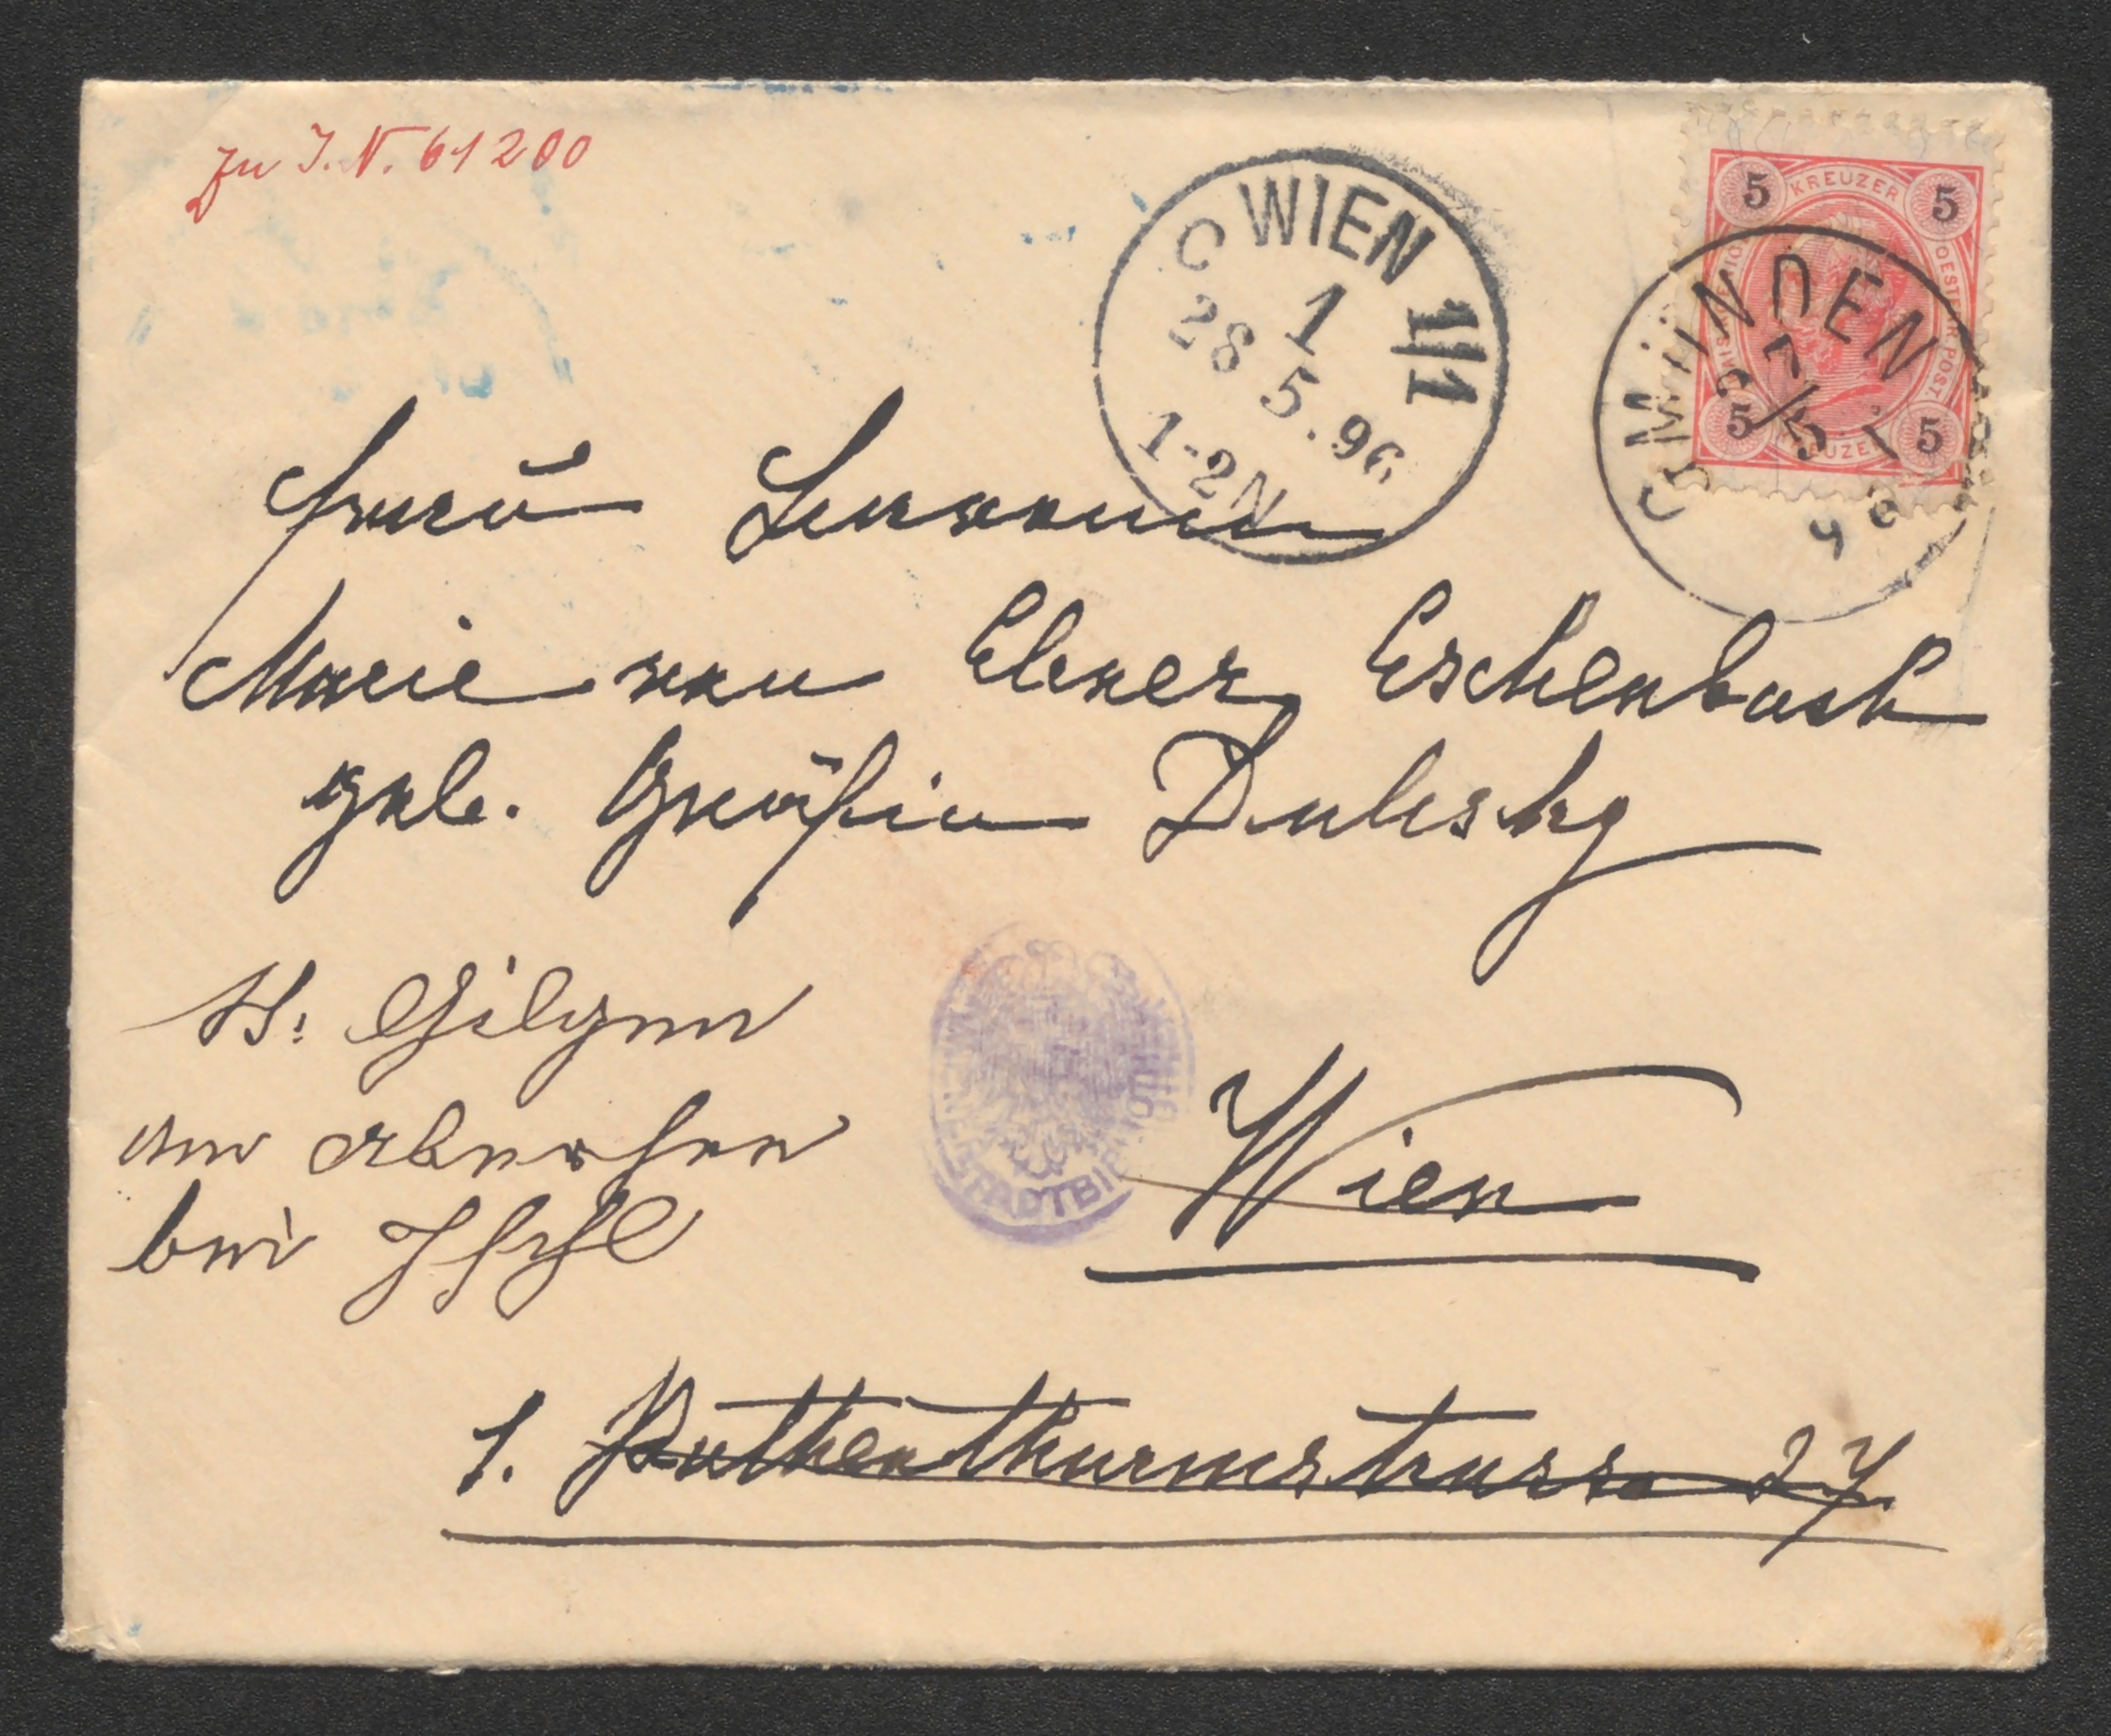 zu I.N. 61200
C WIEN 1/1
1
28 5.96
1-2N
5 KREUZER 5
5 KREUZER 5
GMUNDEN
Frau Baronin
Marie von Ebner Eschenbach
geb. Gräfin Dubsky
St: Gilgen
am Abersee
bei Ischl
STADTBI
Wien
1. Rothenthurmstrasse 27